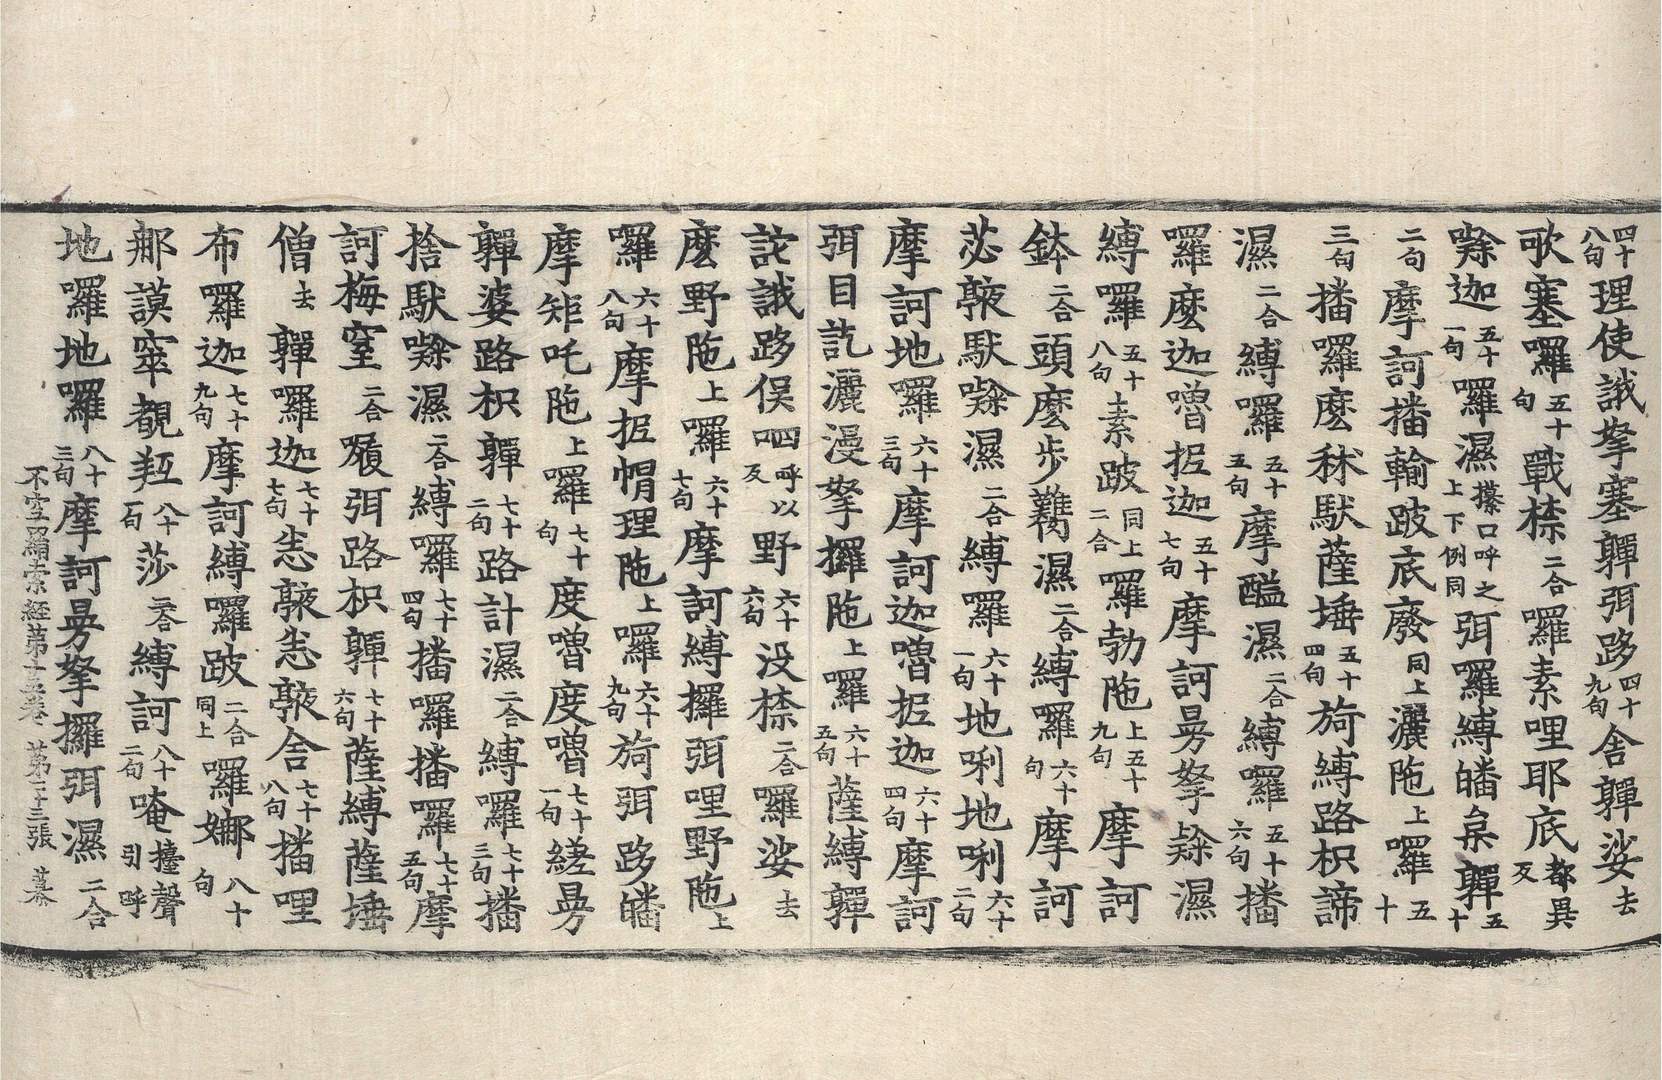 四十八句理使誐拏塞嚲弭跢四十九句舍嚲娑去
歌塞囉五十句戰捺二合囉素哩耶底都異反
㗚迦五十一句囉濕攥口呼之上下例同弭囉縛皤枲嚲五十
二句摩訶播輸跛底廢同上灑陁上囉五十
三句播囉麼秫馱薩埵五十四句旖縛路枳諦
濕二合縛囉五十五句摩醯濕二合縛囉五十六句播
囉麼迦嚕抳迦五十七句摩訶曼拏㗚濕
縛囉五十八句素跛同上二合囉勃陁上五十九句摩訶
鉢二合頭麼步濕二合縛囉六十句摩訶
苾䩭馱㗚濕二合縛囉六十一句地唎地唎六十二句
摩訶地囉六十三句摩訶迦嚕抳迦六十四句摩訶
弭目訖灑漫拏攞陁上囉六十五句薩縛嚲
詑誐跢俁呬呼以反野六十六句没捺二合囉娑去
麼野陁上囉六十七句摩訶縛攞弭哩野陁上
囉六十八句摩抳帽理陁上囉六十九句旖弭跢皤
摩矩吒陁上囉七十句度嚕度嚕七十一句縒曼
嚲婆路枳嚲七十二句路計濕二合縛囉七十三句播
捨馱㗚濕二合縛囉七十四句播囉播囉七十五句摩
訶梅窒二合履弭路枳嚲七十六句薩縛薩埵
僧去嚲囉迦七十七句䩭䩭舍七十八句播哩
布囉迦七十九句摩訶縛囉跛二合同上囉娜八十句
那謨窣覩羝八十一句莎二合縛訶八十二句唵擡聲引呼
地囉地囉八十三句摩訶曼拏攞弭濕二合
不空羂索經第十五卷 第二十三張 慕